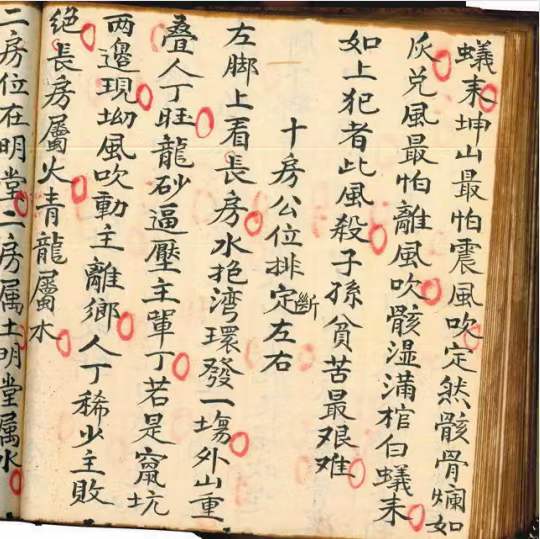 蟻来坤山最怕震風吹定然骸骨爛如
灰兑風最怕離風吹骸湿满棺白蟻来
如上犯者此風殺子孫貧苦最艰难
十房公位排定断左右
左脚上看長房水抱湾環發一塲外山重
叠人丁旺龍砂逼壓主單丁若是窩坑
两邉現坳風吹動主離鄉人丁稀少主敗
绝長房屬火青龍屬水
二房位在明堂二房属土明堂属水